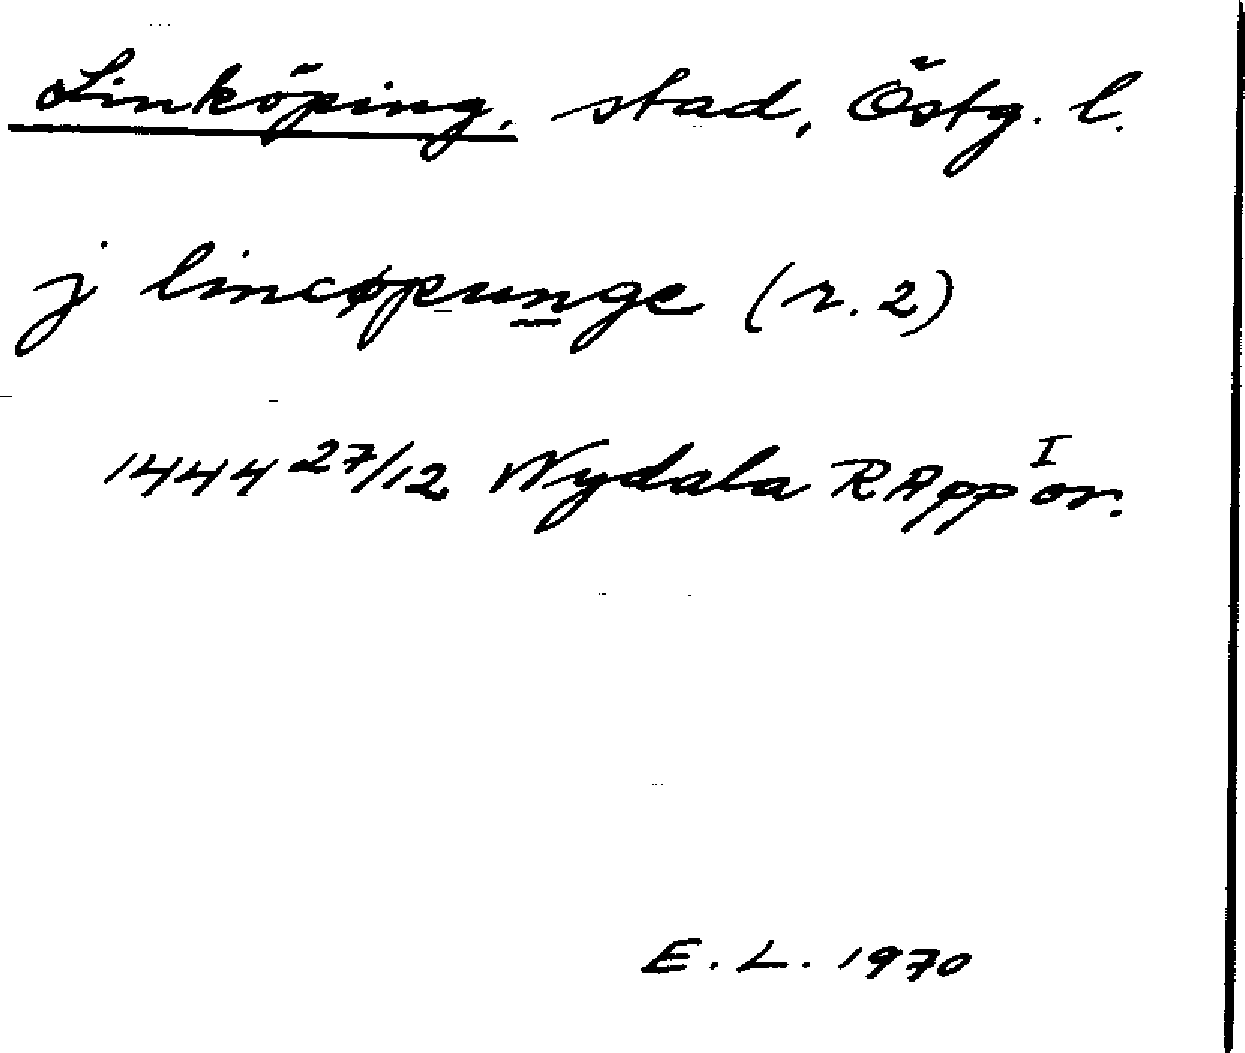 Linköping, stad, Östg. l.
j lincøpunge (r. 2)
1444 27/12 Nydala RApp I or.
E. L. 1970